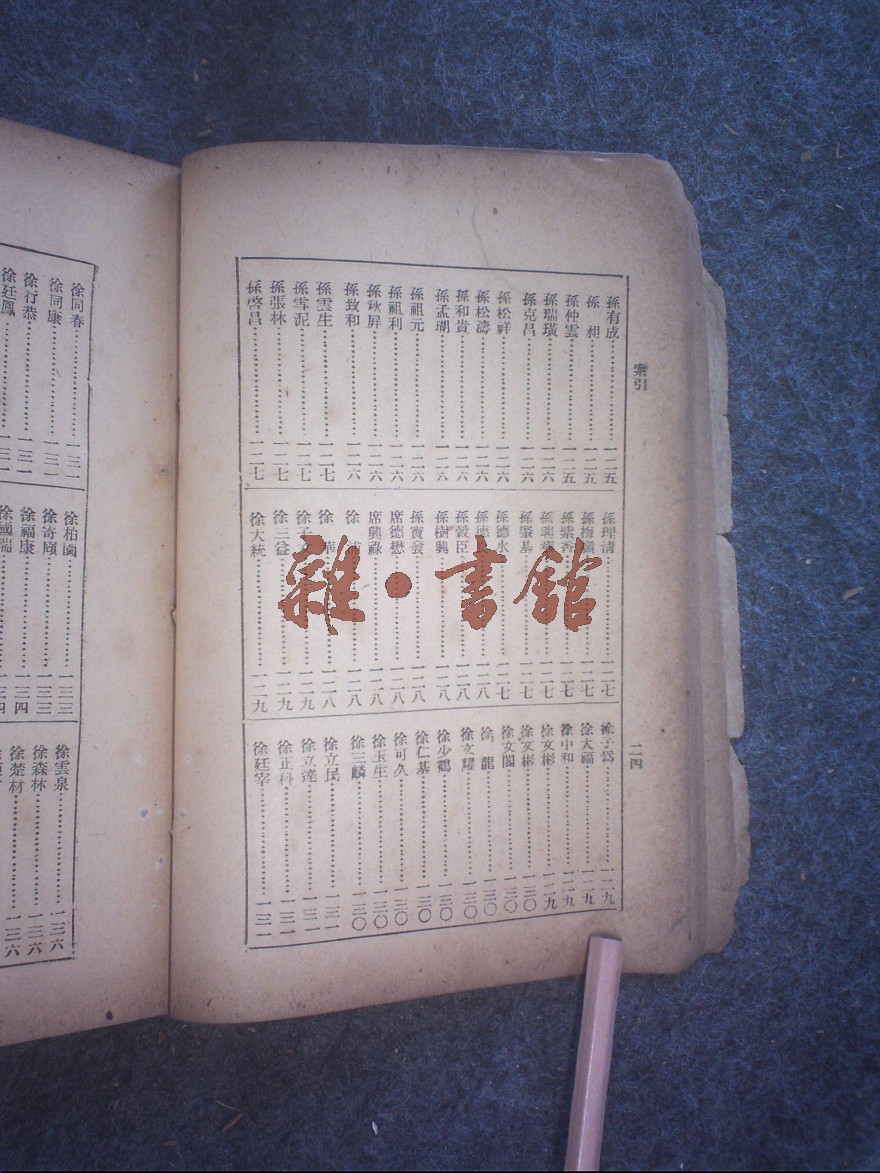 索引
二四
孫有成……一二五
孫　昶……一二五
孫仲雲……一二五
孫瑞璜……一二六
孫克昌……一二六
孫松祥……一二六
孫松濤……一二六
孫和貴……一二六
孫孟瑚……一二六
孫祖元……一二六
孫祖利……一二六
孫秋屏……一二六
孫致和……一二六
孫雲生……一二七
孫雪泥……一二七
孫張林……一二七
孫啓昌……一二七
孫理清……一二七
孫梅……一二七
孫紫香……一二七
孫……一二七
孫……基……一二七
孫德水……一二七
孫德……一二八
孫穀臣……一二八
孫樹興……一二八
孫寶發……一二八
席德懋……一二八
席興祿……一二八
徐　……一二八
徐　華……一二八
徐子……一二九
徐三益……一二九
徐大統……一二九
徐子爲……一二九
徐大福……一二九
徐中和……一二九
徐文彬……一二九
徐文彬……一三〇
徐文閣……一三〇
徐　龍……一三〇
徐文耀……一三〇
徐少鶴……一三〇
徐仁基……一三〇
徐可久……一三〇
徐玉生……一三〇
徐三麟……一三〇
徐立民……一三一
徐立達……一三一
徐正科……一三一
徐廷宰……一三一
徐同春……一三一
徐同康……一三一
徐行恭……一三一
徐廷鳳……一三一
徐柏園……一三三
徐寄廎……一三三
徐福康……一三四
徐國瑞……一三四
徐雲泉……一三六
徐森林……一三六
徐楚材……一三六
雜·書館